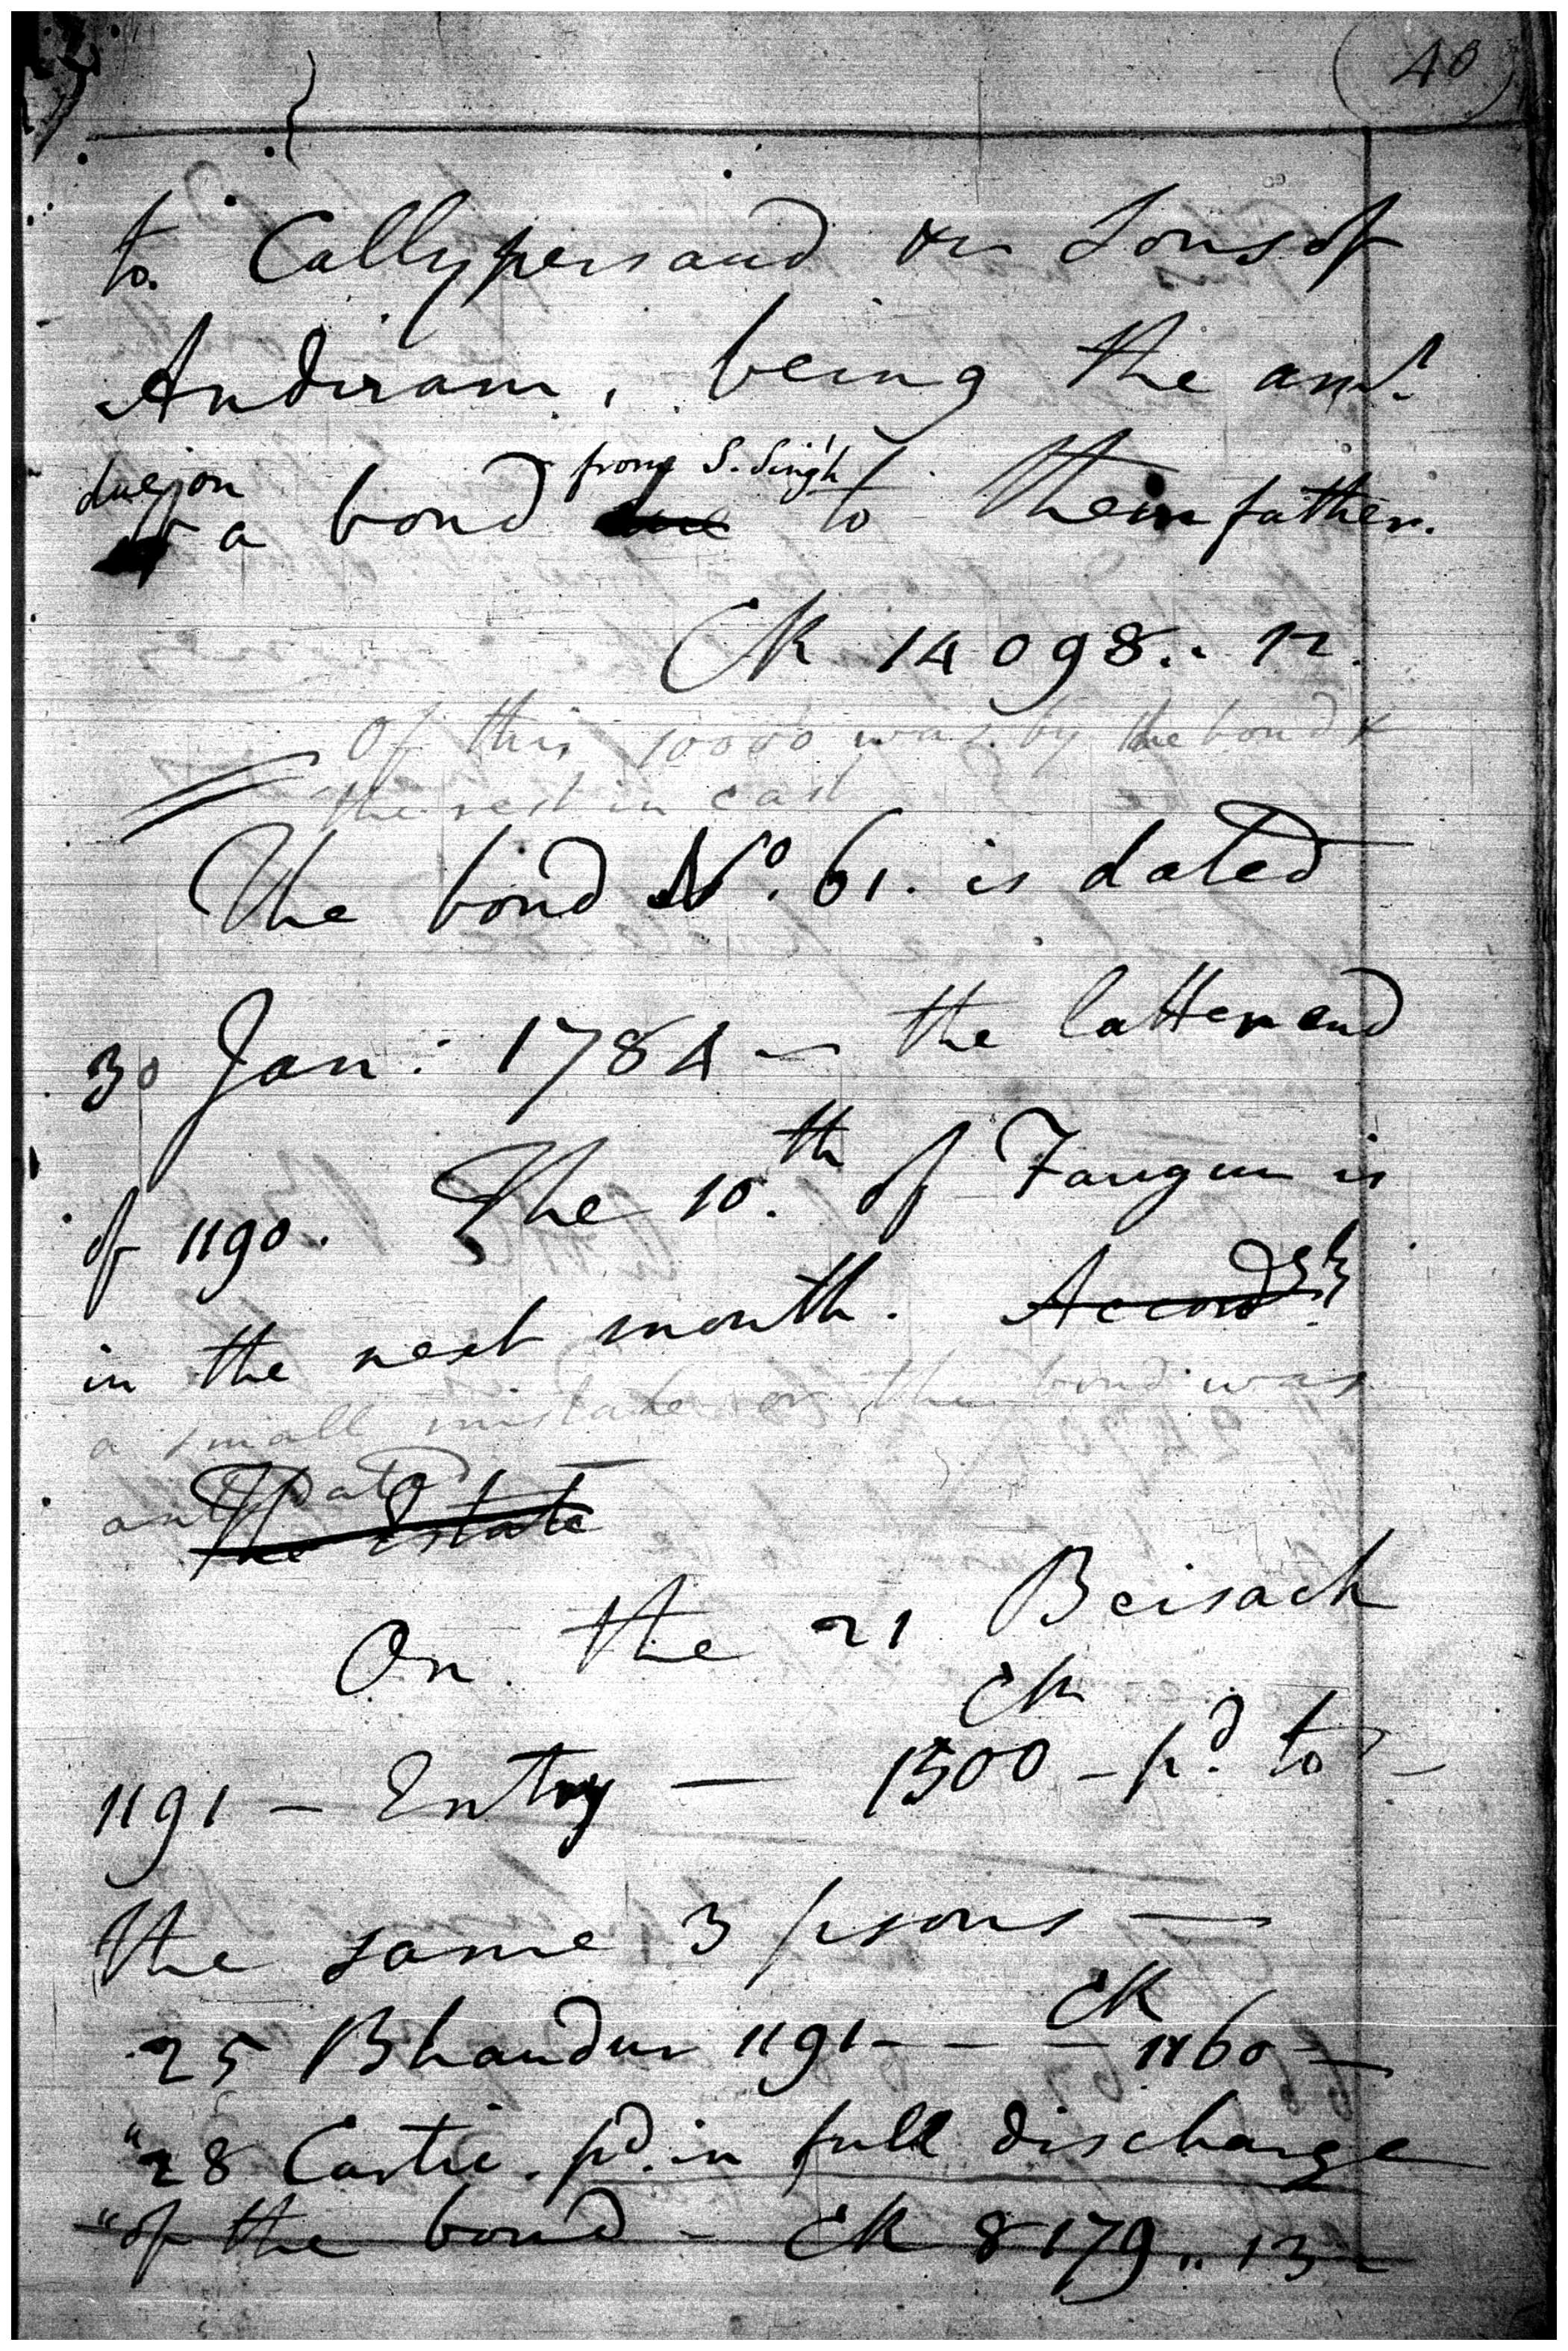 40
to Callypersaud &c Sons of
Andiram, being the amt.
due on from S. Singh
a bond due to their father.
CR 14098.. 12.
Of this 10000 was by the bond &
the rest in cash
The bond No. 61. is dated
30 Jan: 1784 — the latter end
of 1190. The 10.th of Faugun is
in the next month. Accordgly
a small mistake or the bond was
antedated
The Estate
On the 21 Beisach
CR
1191 — Entry — 1500 — pd. to —
the same 3 psons —
CR
25 Bhaudur 1191 - - - 1160 —
"28 Cartic. pd. in full discharge
"of the bond - CR 8179,, 13 -